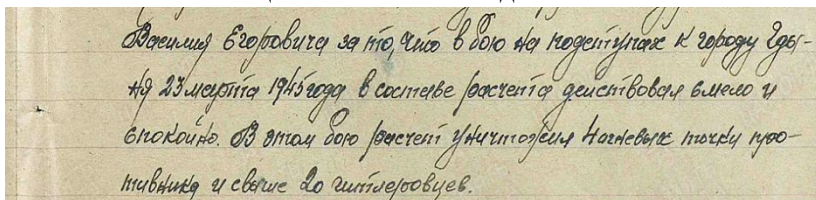 Василия Егоровича за то, что в бою на подступах к городу Гды-
ня 23 марта 1945 года в составе расчета действовал смело и
спокойно. В этом бою расчет уничтожил 4 огневых точки про-
тивника и свыше 20 гитлеровцев.